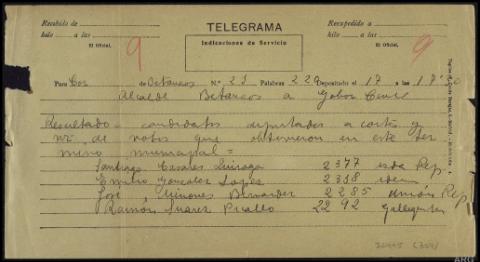 Recibido de
hilo a las
El Oficial,
9
TELEGRAMA
Indicaciones de Servicio
Expedido a
hilo a las
El Oficial,
9
Para Cor de Betanzos N.º 23 Palabras 229 Depositado el 17 a las
Alcalde Betanzos a Gobor Civil
Resultado candidatos diputados a cortes y
nº de votos que obtuvieron en este ter
mino municipal =
Santiago Casares Quiroga 2377 izda Rep
Emilio Gonzalez Lopez 2358 idem
José Miñones Bernardez 2285 unión Rep
Ramón Suarez Picallo 2292 galleguista